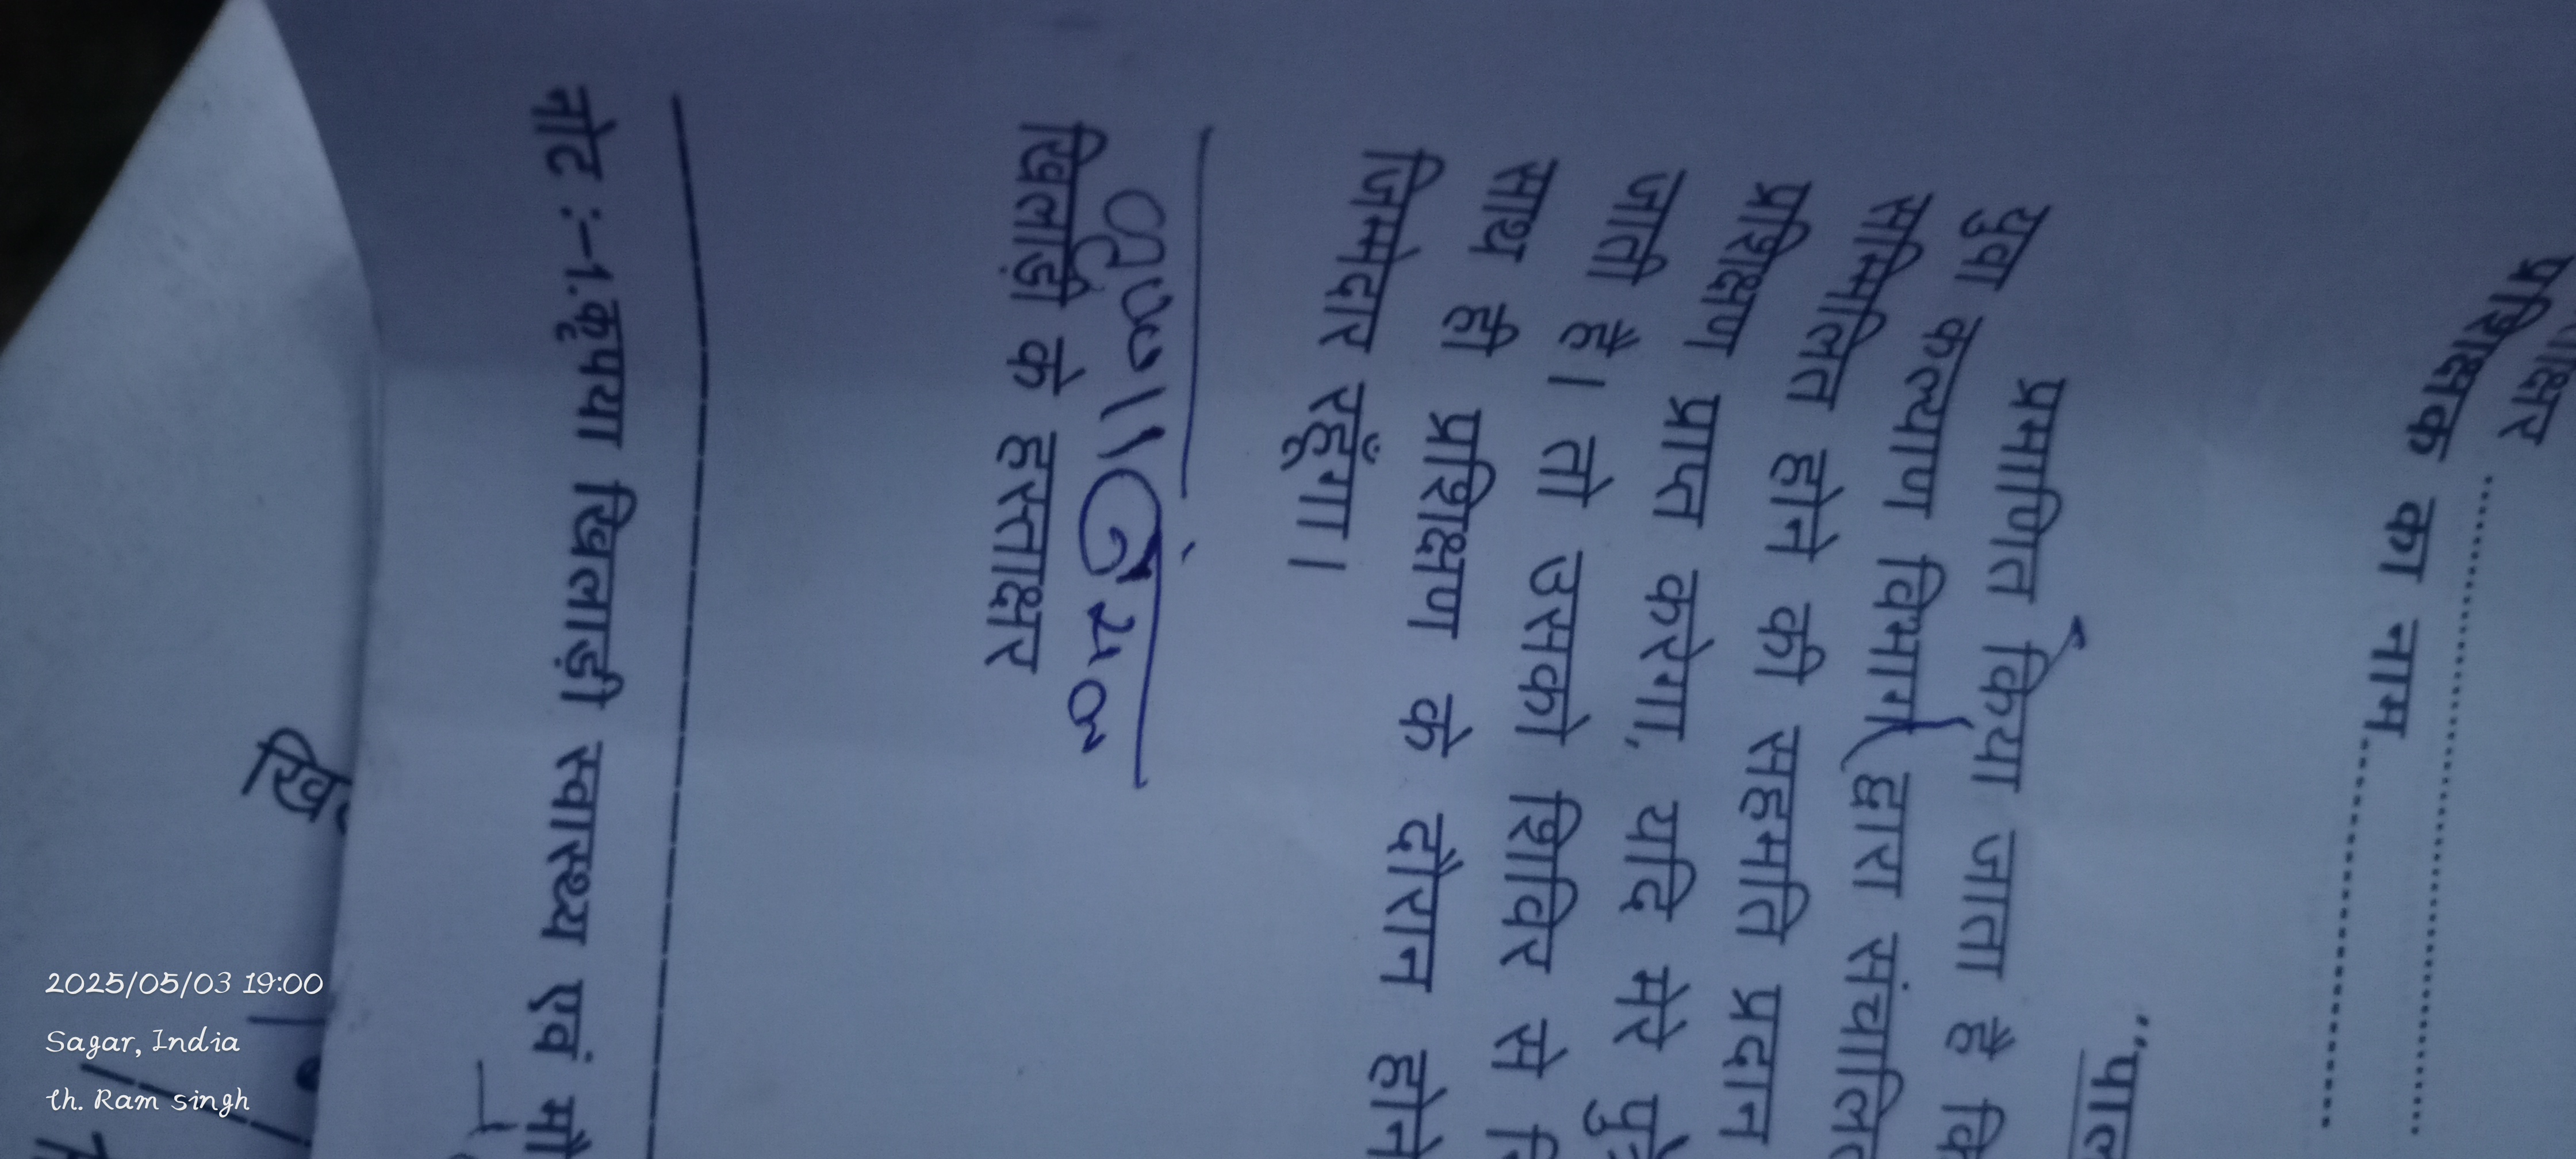 हस्ताक्षर
प्रशिक्षक का नाम
"पाल
प्रमाणित किया जाता है कि
युवा कल्याण विभाग द्वारा संचालित
सम्मिलित होने की सहमति प्रदान
प्रशिक्षण प्राप्त करेगा, यदि मेरे पुत्र
जाती है। तो उसको शिविर से
साथ ही प्रशिक्षण के दौरान होने
जिम्मेदार रहूँगा।
खिलाड़ी के हस्ताक्षर
नोट :-1.कृपया खिलाड़ी स्वास्थ्य एवं मौ
खि
2025/05/03 19:00
Sagar, India
th. Ram singh